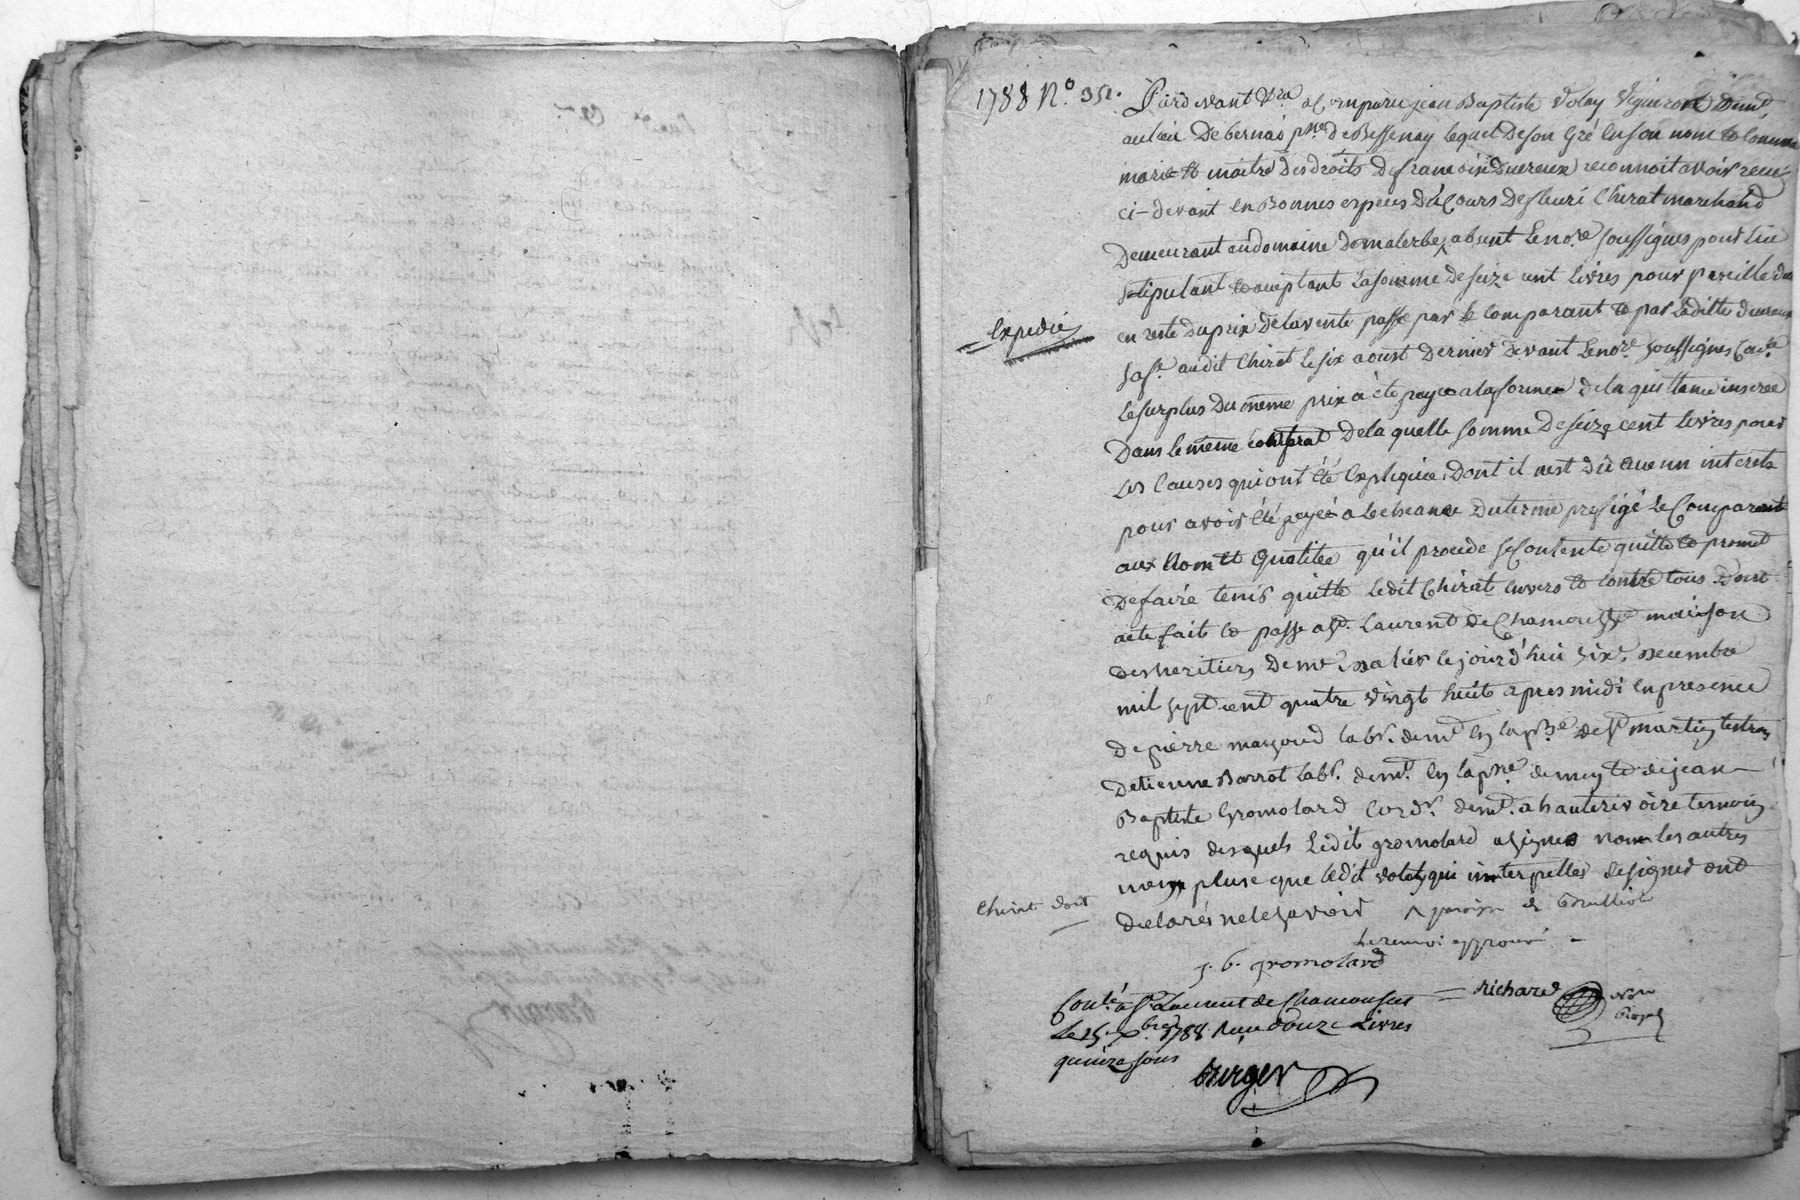 1788 N.° 351.
Pardevant &ra a Comparu jean Baptiste Volay Vigneron Demt.
au lieu De bernai psse De Bessenay lequel De son Gré En son nom & Comme
marie & maitre Des droits De francoise Ducreux reconnoit avoir receu
ci-devant En Bonnes especes Du Cours De fleuri Chirat marchand
Demeurant au domaine De malerbe ^ absent Le nore. soussignés pour Lui
stipulant & aceptant La somme De seize cent Livres pour pareille due
en reste Du prix De la vente passé par le Comparant & par Laditte Ducreux
sa fe. audit Chirat Le six aoust Dernier devant Le nore. soussignés
Le surplus Du même prix a été payé a la forme De la quittance inserée
Dans Le même Contrat De laquelle somme De seize cent Livres pour
Les Causes qui ont été Expliquée, Dont il n'est Dû aucun interets
pour avoir été payée a l'echeance Du terme prefigé Le Comparant
aux Nom & Qualitée qu'il procede se Contente quitte & promet
De faire tenir quitte Ledit Chirat Envers & Contre tous. Dont
acte fait & passe a St. Laurent De Chamousset maison
Des heritiers De mr. Dalier le jourd'hui six. Decembre
mil sept cent quatre vingt huit apres midi En presence
De pierre marjoud labr. demt. En la psse. de St martin
D'etienne Barrot labr. demt. En la psse. de meys & de jean
Baptiste Gromolard Cordr. demt. a hauterivoire temoins
requis desquels Ledit gromolard a signé non les autres
non pluse que Ledit volay qui interpellés De signer ont
Declarés ne le sçavoir ^ paroisse de Brullioles
Le renvoi approuvé
Expedié
Chirat doit
j. b. gromolard
richard Nore
Royal
Conlé. a St. Laurent de Chamousset
Le 15. Xbre 1788. Reçu douze Livres
quinze sous
burger